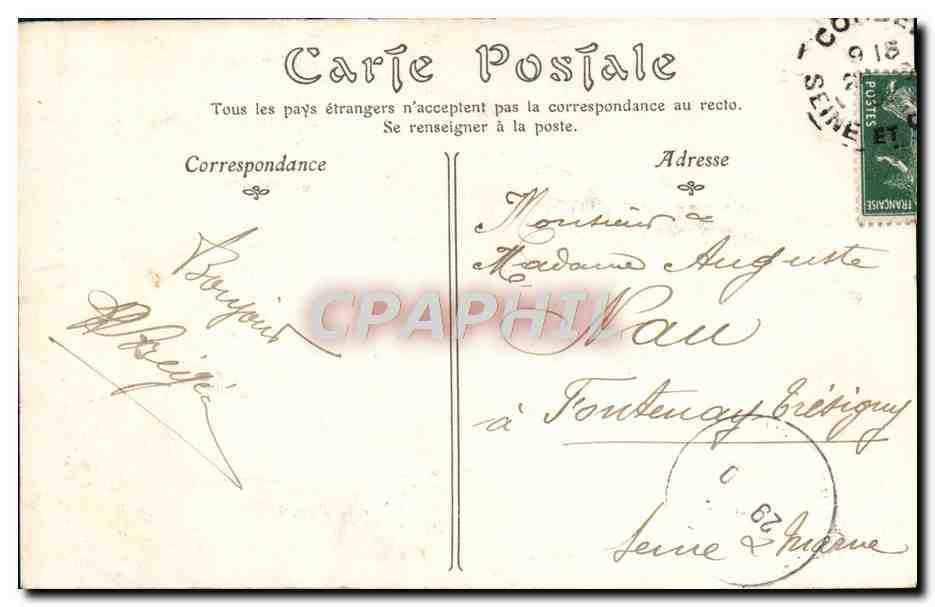 Carte Postale
Tous les pays étrangers n'acceptent pas la correspondance au recto.
Se renseigner à la poste.
Correspondance
Adresse
9 15
SEINE ET
POSTES
FRANÇAISE
Bonjour
Monsieur &
Madame Auguste
Nau
à Fontenay Trésigny
Seine & Marne
29
CPAPHIL